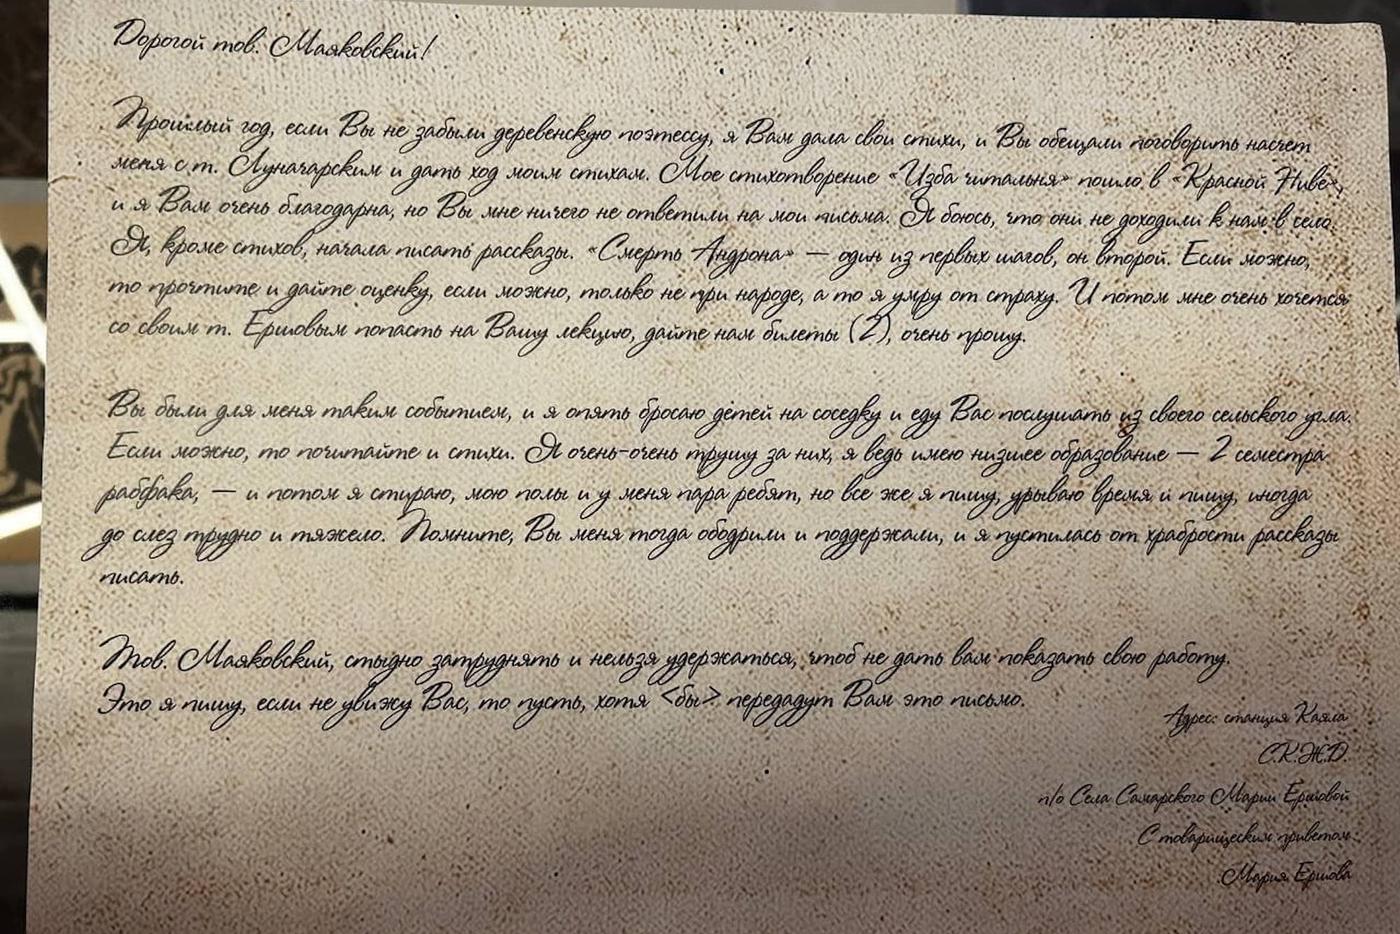 Дорогой тов. Маяковский!
Прошлый год, если Вы не забыли деревенскую поэтессу, я Вам дала свои стихи, и Вы обещали поговорить насчет
меня с т. Луначарским и дать ход моим стихам. Мое стихотворение «Изба читальня» пошло в «Красной Ниве»,
и я Вам очень благодарна, но Вы мне ничего не ответили на мои письма. Я боюсь, что они не доходили к нам в село.
Я, кроме стихов, начала писать рассказы. «Смерть Андрона» — один из первых шагов, он второй. Если можно,
то прочтите и дайте оценку, если можно, только не при народе, а то я умру от страху. И потом мне очень хочется
со своим т. Ершовым попасть на Вашу лекцию, дайте нам билеты (2), очень прошу.
Вы были для меня таким событием, и я опять бросаю детей на соседку и еду Вас послушать из своего сельского угла.
Если можно, то почитайте и стихи. Я очень-очень трушу за них, я ведь имею низшее образование — 2 семестра
рабфака, — и потом я стираю, мою полы и у меня пара ребят, но все же я пишу, урываю время и пишу, иногда
до слез трудно и тяжело. Помните, Вы меня тогда ободрили и поддержали, и я пустилась от храбрости рассказы
писать.
Тов. Маяковский, стыдно затруднять и нельзя удержаться, чтоб не дать вам показать свою работу.
Это я пишу, если не увижу Вас, то пусть, хотя <бы> передадут Вам это письмо.
Адрес: станция Каяла
С.К.Ж.Д.
п/о Села Самарского Марии Ершовой
С товарищеским приветом
Мария Ершова